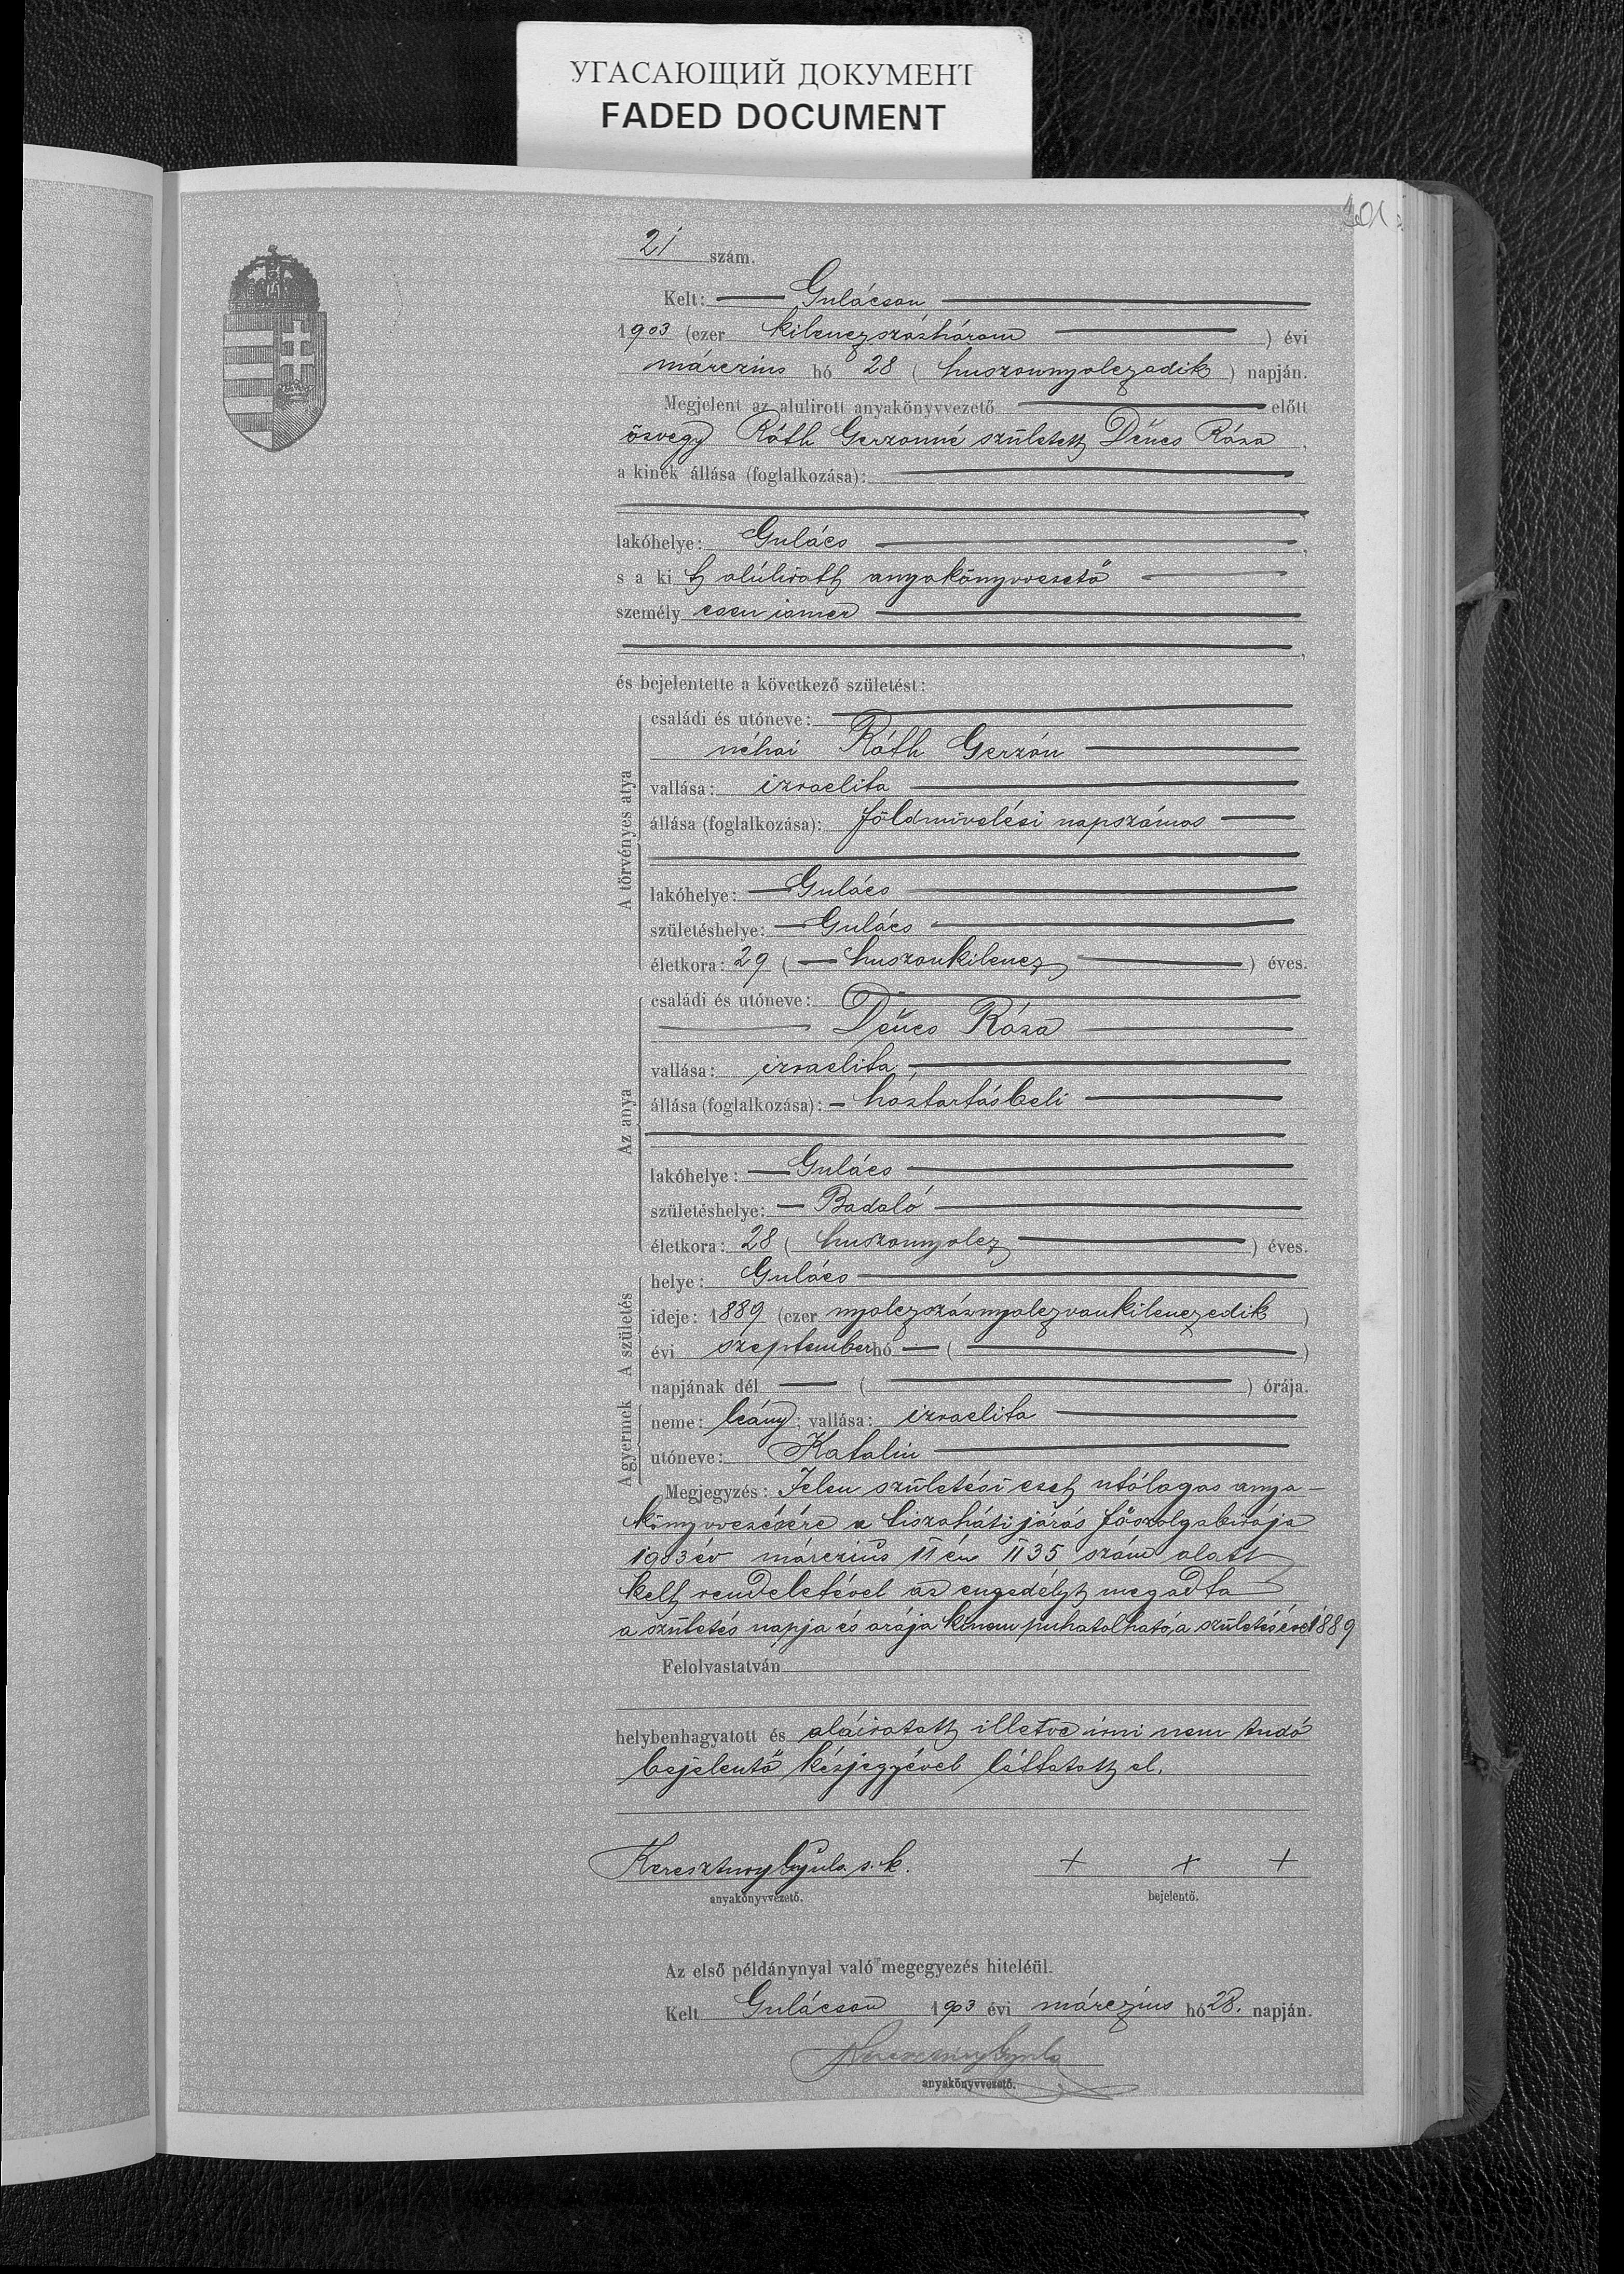 УГАСАЮЩИЙ ДОКУМЕНТ
FADED DOCUMENT
201.
21 szám.
Kelt: Gulácson
1903 (ezer kilenczszázhárom ) évi
márczius hó 28 ( huszonnyolczadik ) napján.
Megjelent az alulirott anyakönyvvezető előtt
özvegy Róth Gerzonné született Déucs Róza ,
a kinek állása (foglalkozása):
lakóhelye: Gulács ,
s a ki t alúlirott anyakönyvvezető
személy esen ismer
és bejelentette a következő születést:
A törvényes atya
családi és utóneve:
néhai Róth Gerzón
vallása: izraelita
állása (foglalkozása): földmivelési napszámos
lakóhelye: Gulács
születéshelye: Gulács
életkora: 29 ( huszonkilencz ) éves.
Az anya
családi és utóneve:
Déucs Róza
vallása: izraelita
állása (foglalkozása): háztartásbeli
lakóhelye: Gulács
születéshelye: Badaló
életkora: 28 ( huszonnyolcz ) éves.
A születés
helye: Gulács
ideje: 1889 (ezer nyolczszáznyolczvankilenczedik )
évi szeptember hó ( )
napjának dél ( ) órája.
A gyermek
neme: leány; vallása: izraelita
utóneve: Katalin
Megjegyzés: Jelen születési eset utólagos anya-
könyvvezésére a tiszaháti járás főszolgabirája
1903 év márczius 11 én 1135 szám alatt
kelt rendeletével az engedélyt megadta
a születés napja és órája ki nem puhatolható, a születés éve 1889
Felolvastatván
helybenhagyatott és aláiratott illetve irni nem tudó
bejelentő kézjegyével láttatott el.
Keresztury Gyula s. k. + + +
anyakönyvvezető. bejelentő.
Az első példánynyal való megegyezés hiteléül.
Kelt Gulácson 1903 évi márczius hó 28. napján.
Keresztury Gyula
anyakönyvvezető.